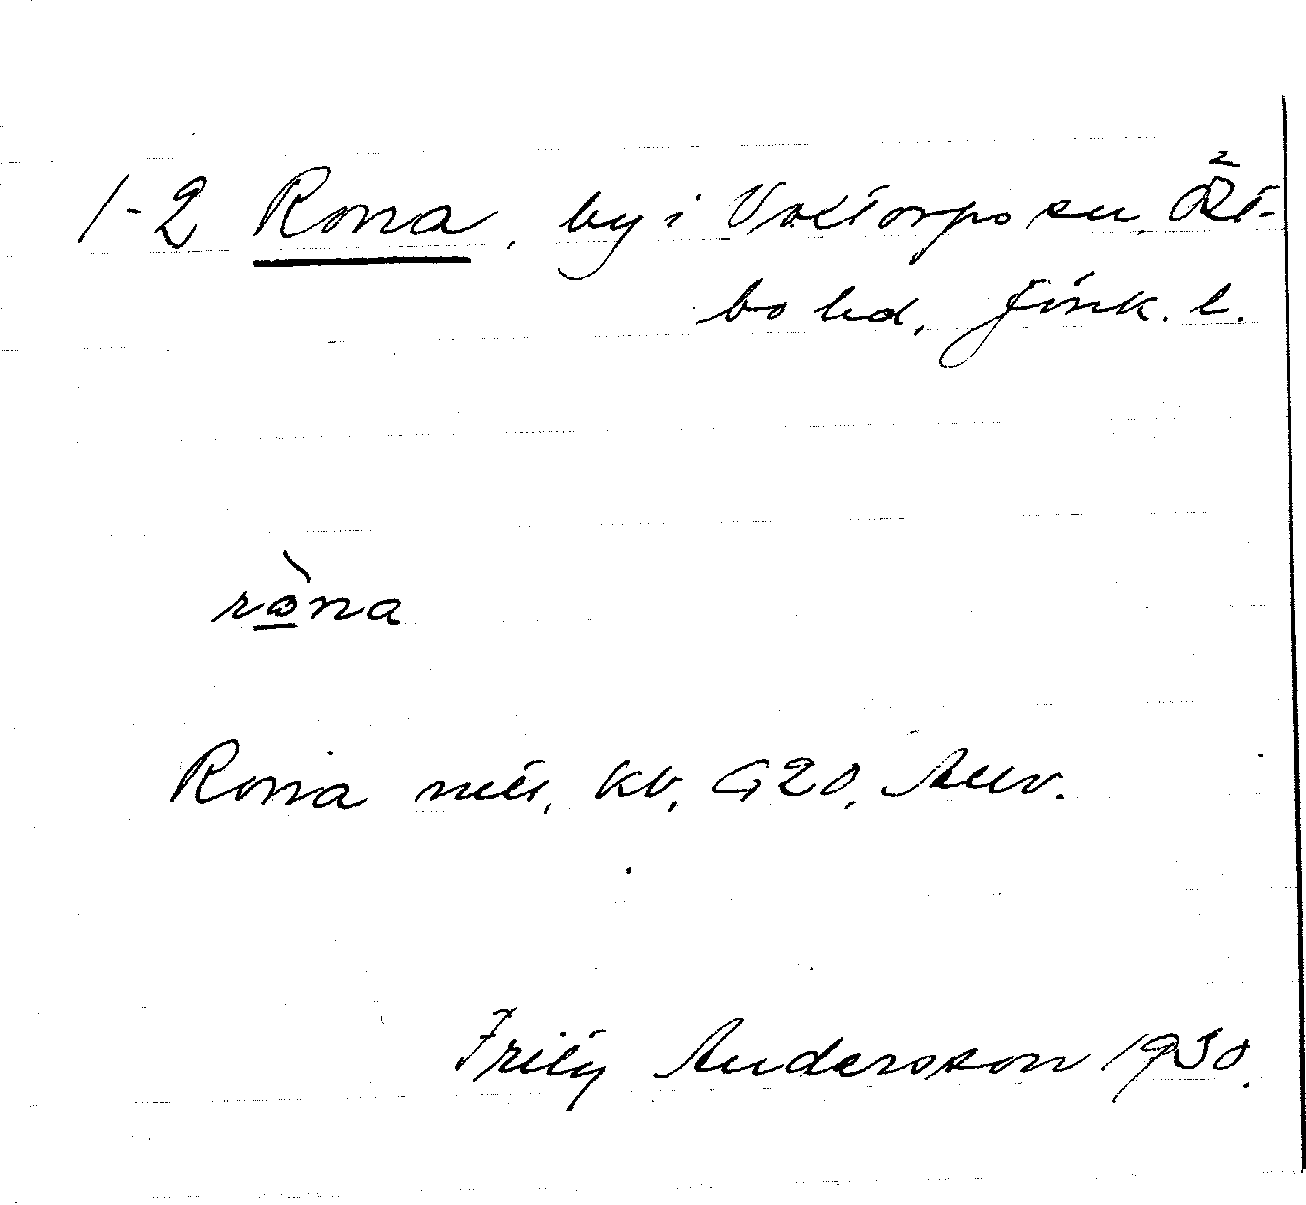 1-2 Rona, by i Voxtorps sn, Öst-
bo hd, Jönk. l.
ròna
Rona mtl, kb, G20, Auv.
Fritz Andersson 1930.